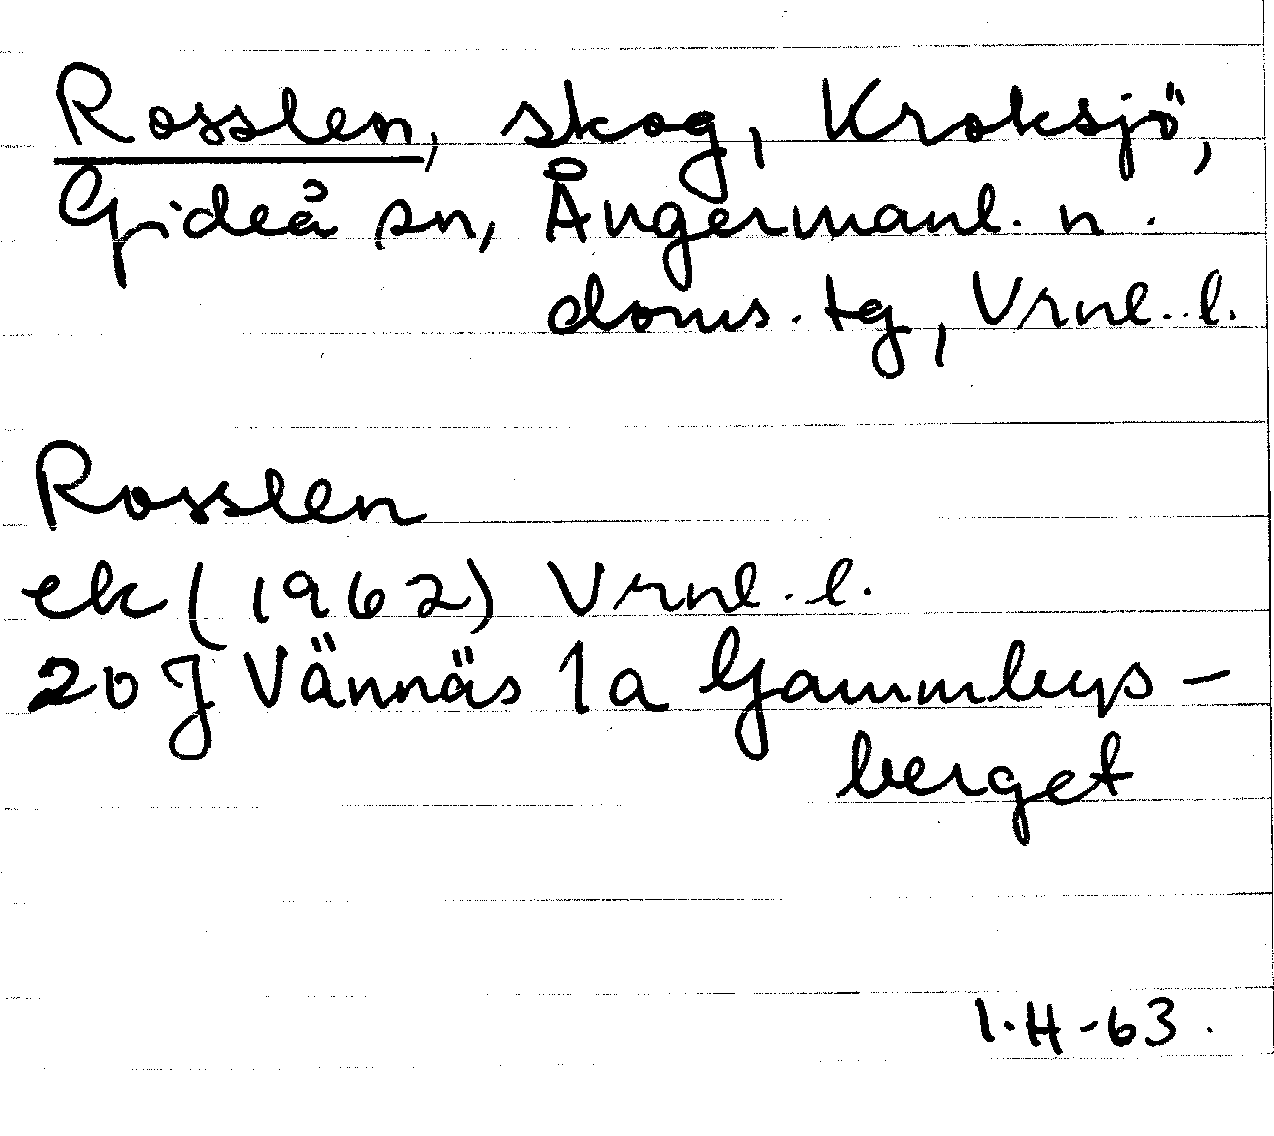 Rosslen, skog, Kroksjö,
Gideå sn, Ångermanl. n.
doms. tg, Vrnl. l.
Rosslen
ek (1962) Vrnl. l.
20 J Vännäs 1a Gammbygs-
berget
I.H-63.